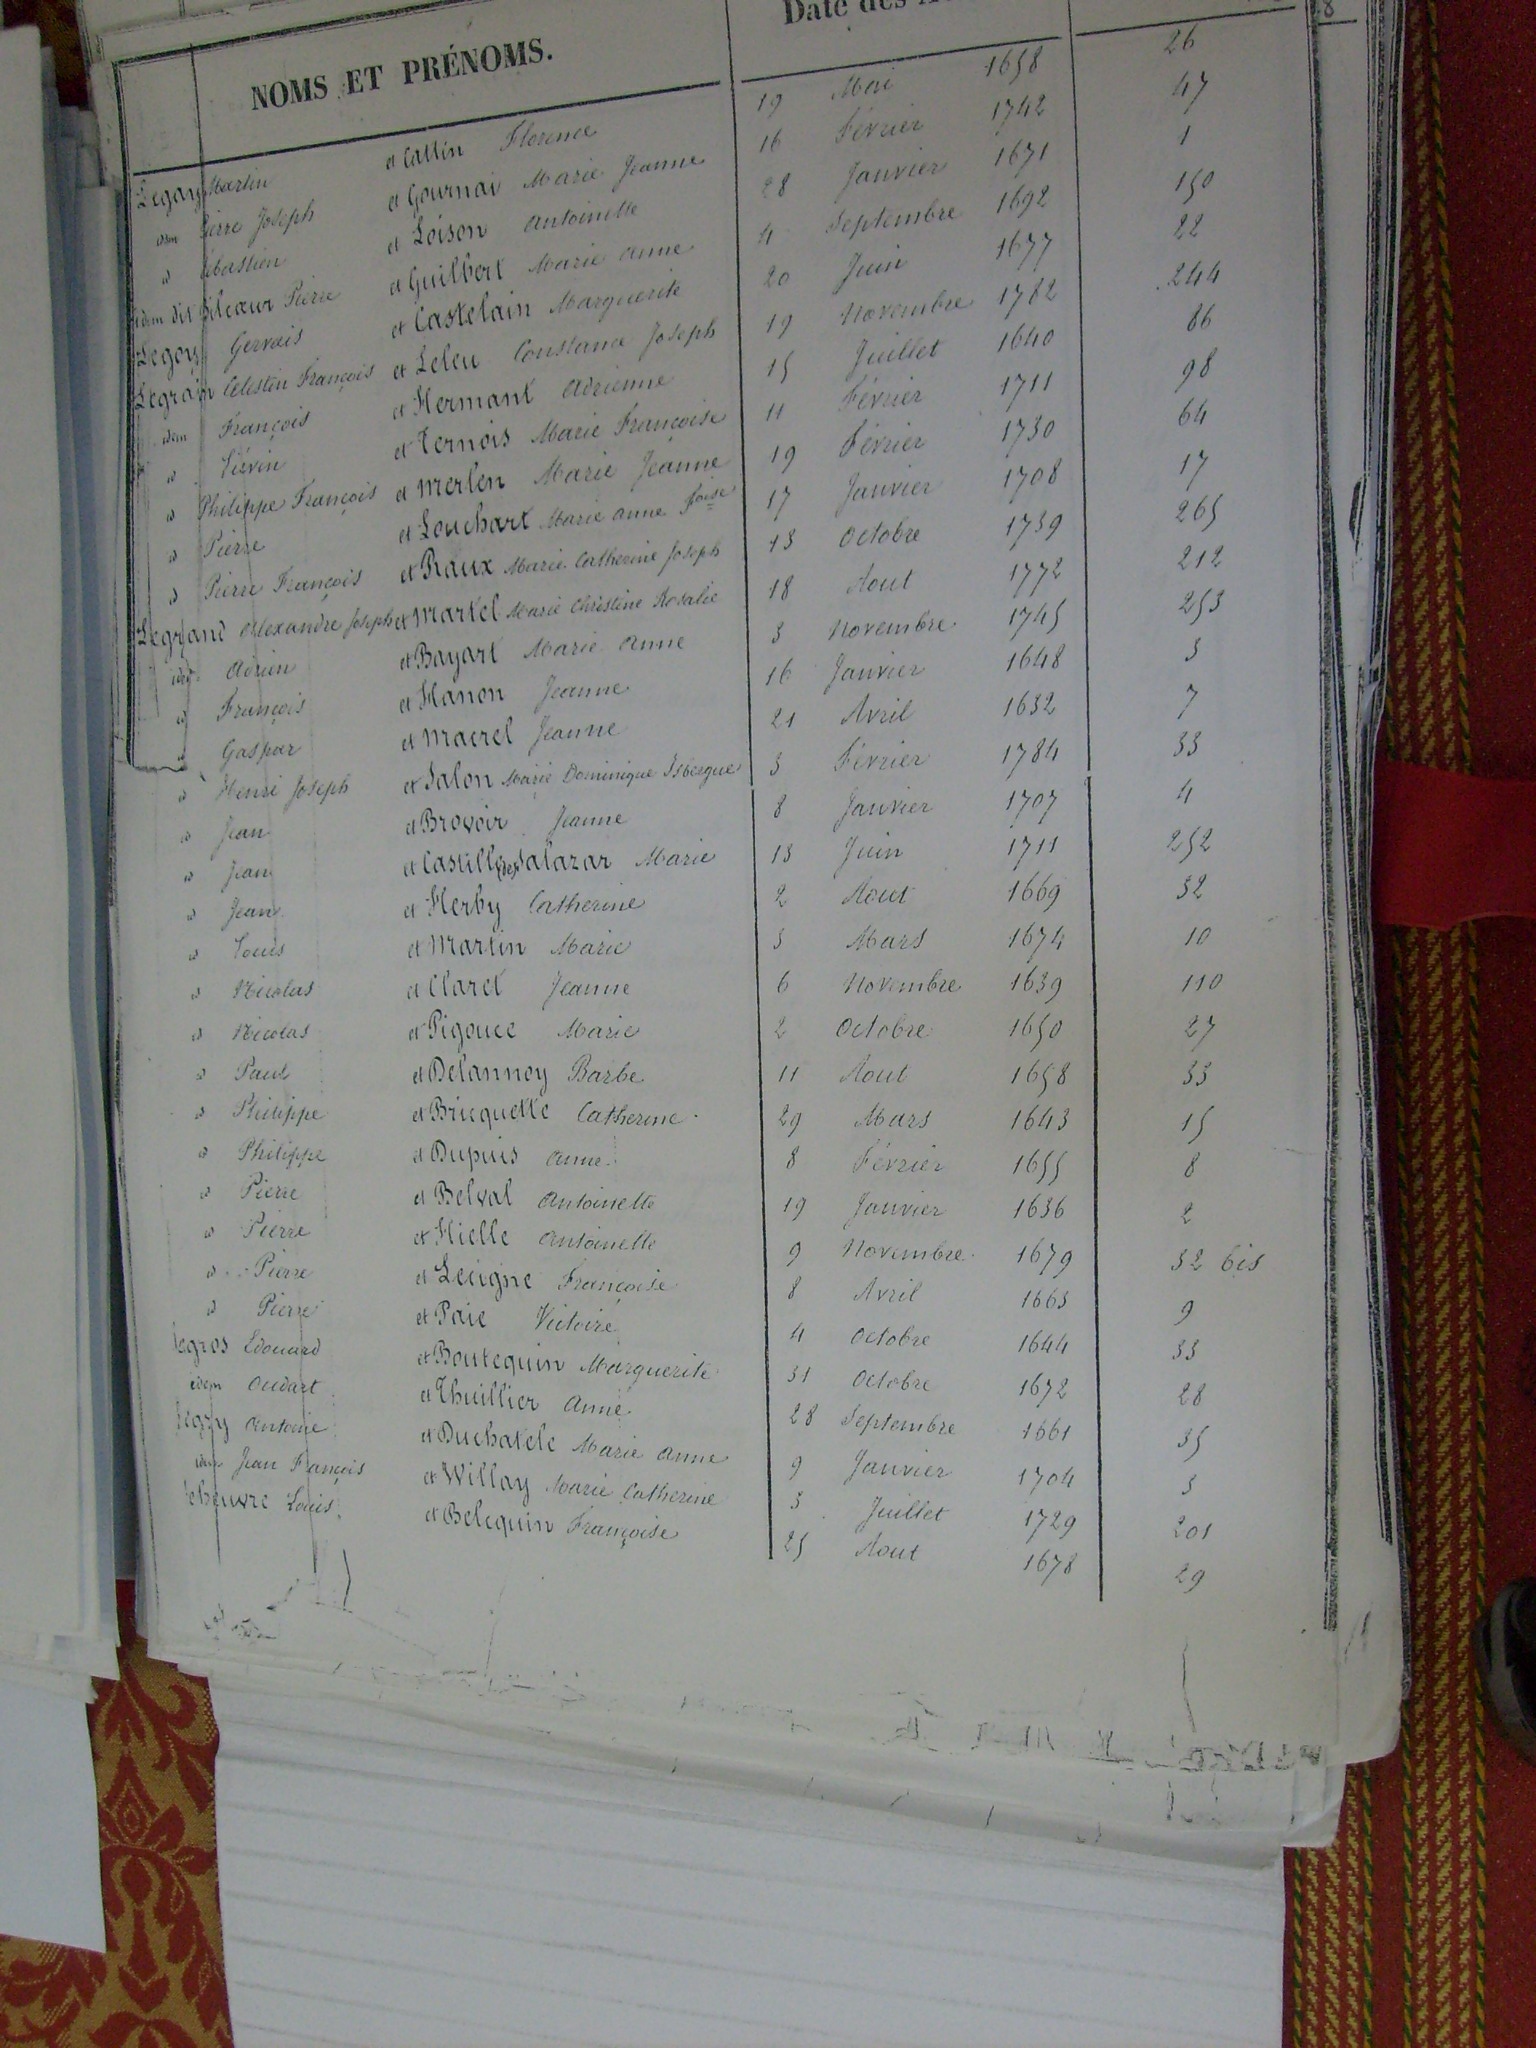 NOMS ET PRÉNOMS. Date des
Legay Martin et Cattin Florence 19 Mai 1658 26
idem Pierre Joseph et Gournai Marie Jeanne 16 Février 1742 47
id Sébastien et Loison Antoinette 28 Janvier 1671 1
idem dit Silcœur Pierre et Guilbert Marie Anne 4 Septembre 1692 150
Legoy Gervais et Castelain Marguerite 20 Juin 1677 22
Legrain Celestin François et Leleu Constance Joseph 19 Novembre 1782 244
idem François et Hermant Adrienne 15 Juillet 1640 86
id Liévin et Ternois Marie Françoise 11 Février 1711 98
id Philippe François et Merlen Marie Jeanne 19 Février 1730 64
id Pierre et Louchart Marie Anne foise 17 Janvier 1708 17
id Pierre François et Raux Marie Catherine Joseph 13 Octobre 1739 265
Legrand Alexandre Joseph et Martel Marie Christine Rosalie 18 Aout 1772 212
idem Adrien et Bayart Marie Anne 3 Novembre 1745 253
id François et Hanon Jeanne 16 Janvier 1648 3
id Gaspar et Macrel Jeanne 21 Avril 1632 7
id Henri Joseph et Salon Marie Dominique Isbergue 3 Février 1784 33
id Jean et Brovoir Jeanne 8 Janvier 1707 4
id Jean et Castille Salazar Marie 13 Juin 1711 252
id Jean et Herby Catherine 2 Aout 1669 32
id Louis et Martin Marie 3 Mars 1674 10
id Nicolas et Claret Jeanne 6 Novembre 1639 110
id Nicolas et Pigouce Marie 2 Octobre 1650 27
id Paul et Delannoy Barbe 11 Aout 1658 33
id Philippe et Bricquette Catherine 29 Mars 1643 15
id Philippe et Dupuis Anne 8 Février 1655 8
id Pierre et Belval Antoinette 19 Janvier 1636 2
id Pierre et Hielle Antoinette 9 Novembre 1679 32 bis
id Pierre et Lecigne Françoise 8 Avril 1663 9
id Pierre et Paie Victoire 4 Octobre 1644 33
Legros Edouard et Boutequin Marguerite 31 Octobre 1672 28
idem Oudart et Thuillier Anne 28 Septembre 1661 35
Legry Antoine et Duchatele Marie Anne 9 Janvier 1704 3
idem Jean François et Willay Marie Catherine 3 Juillet 1729 201
Leheuvre Louis et Belequin Françoise 25 Aout 1678 29